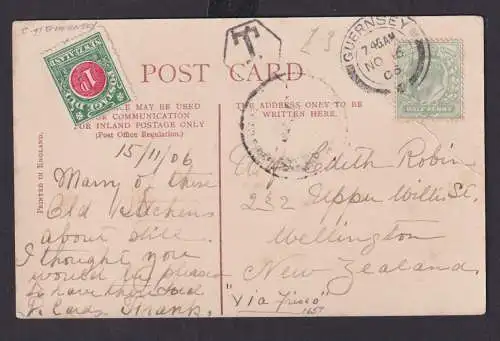 C. 45 GUERNSEY
T
L3
GUERNSEY
7.45AM
NO 16
06
NEW ZEALAND
1D
POSTAGE DUE
HALF PENNY
POST CARD
MAY BE USED
FOR COMMUNICATION
FOR INLAND POSTAGE ONLY
(Post Office Regulation.)
THE ADDRESS ONLY TO BE
WRITTEN HERE.
PRINTED IN ENGLAND.
15/11/06
Many of these
Old Kitchens
about still.
I thought you
would be pleased
to have this kind
P. Cards. Frank.
Edith Robin
232 Upper Willis St.
Wellington
New Zealand.
"Via Frisco"